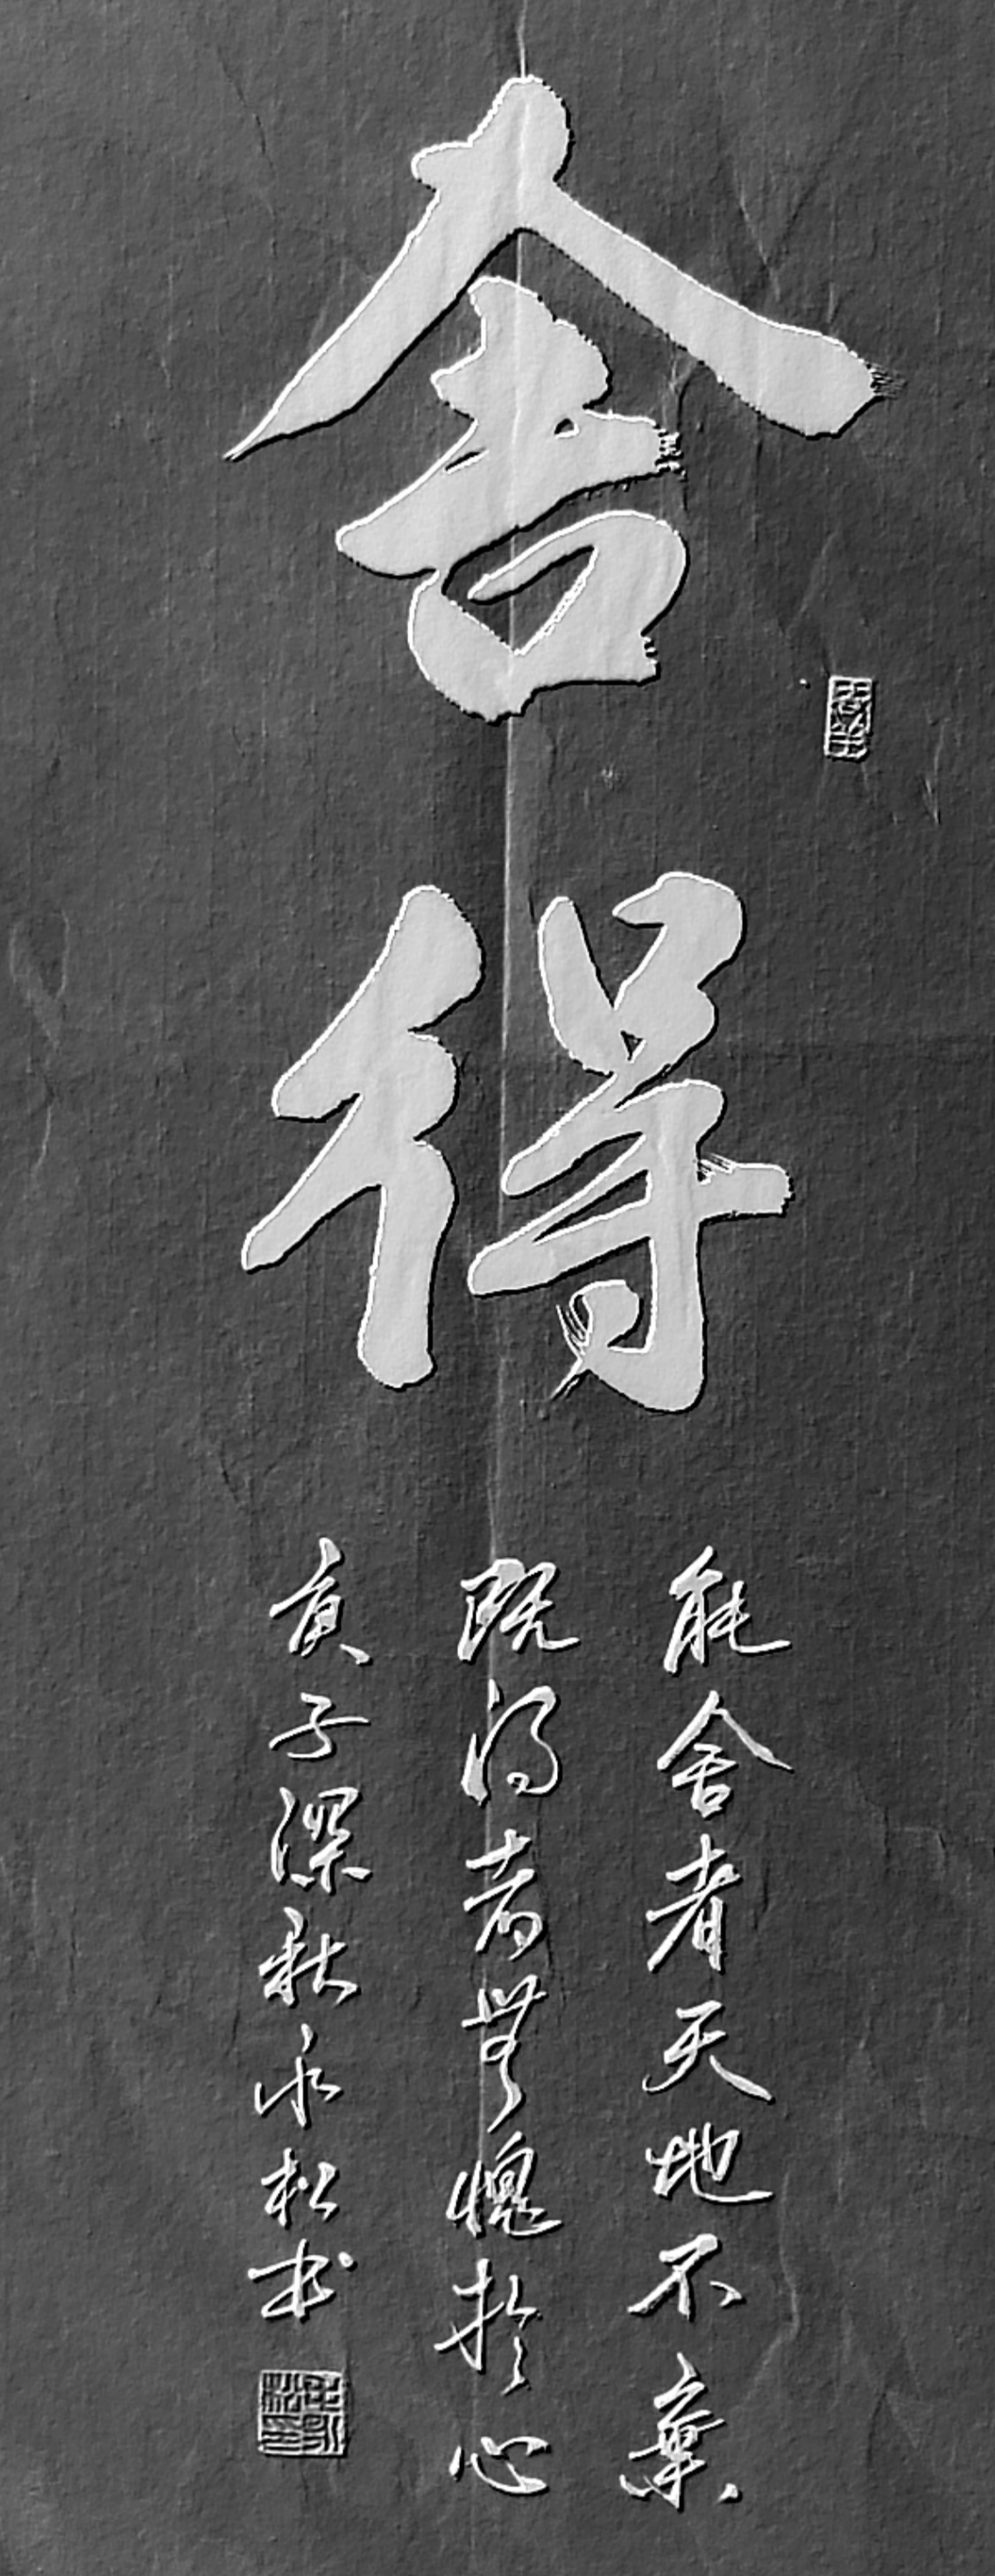 舍得
能舍者天地不棄
既得者無愧於心
庚子深秋永松书